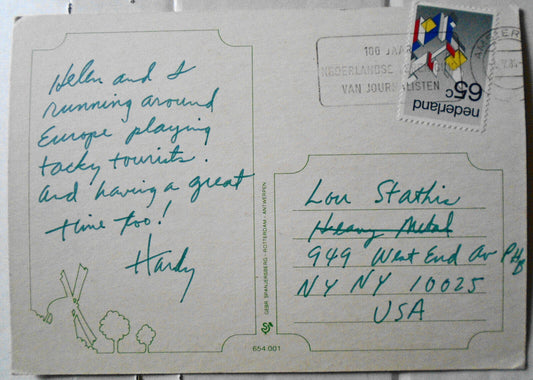 Helen and I
running around
Europe playing
tacky tourists.
And having a great
time too!
Hardy
GEBR. SPANJERSBERG - ROTTERDAM - ANTWERPEN
654.001
100 JAAR
NEDERLANDSE
VAN JOURNALISTEN
AMSTER
nederland
65c
Lou Stathis
Heavy Metal
949 West End Av PHB
NY NY 10025
USA